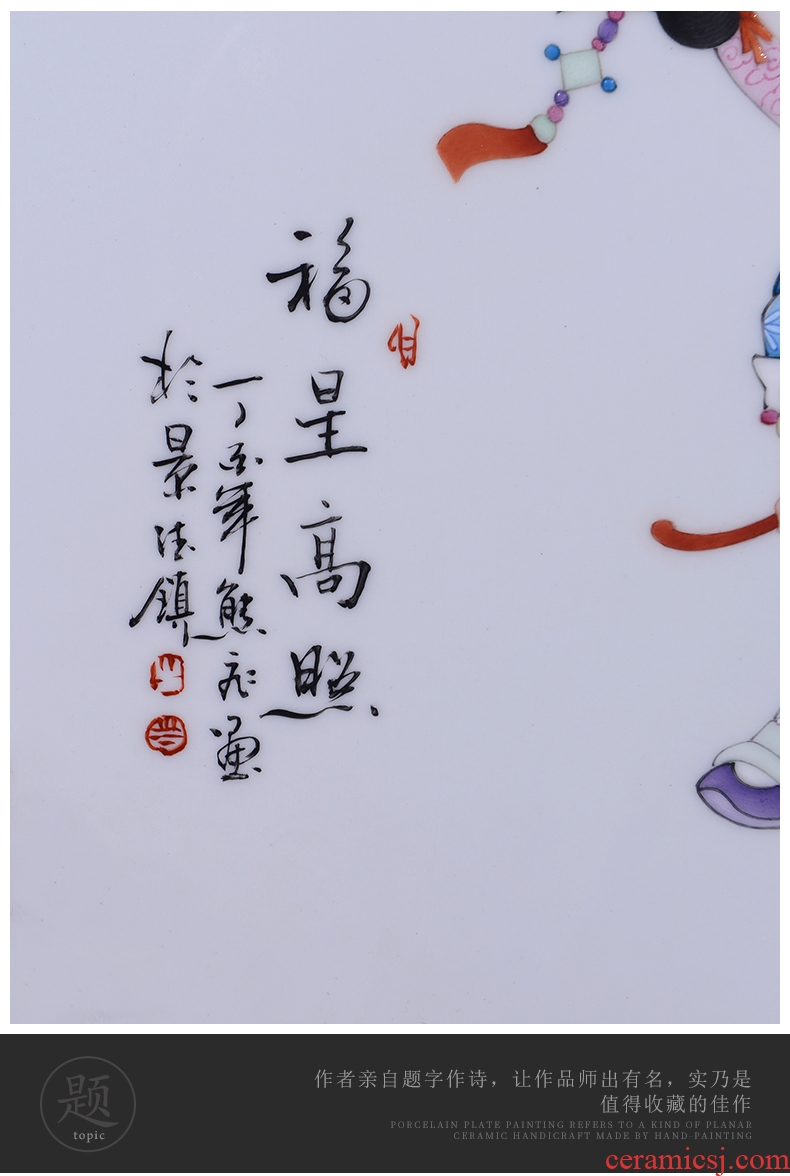 福星高照
丁酉年熊
於景德鎮
题
topic
作者亲自题字作诗，让作品师出有名，实乃是
值得收藏的佳作
PORCELAIN PLATE PAINTING REFERS TO A KIND OF PLANAR
CERAMIC HANDICRAFT MADE BY HAND-PAINTING
ceramicsj.com